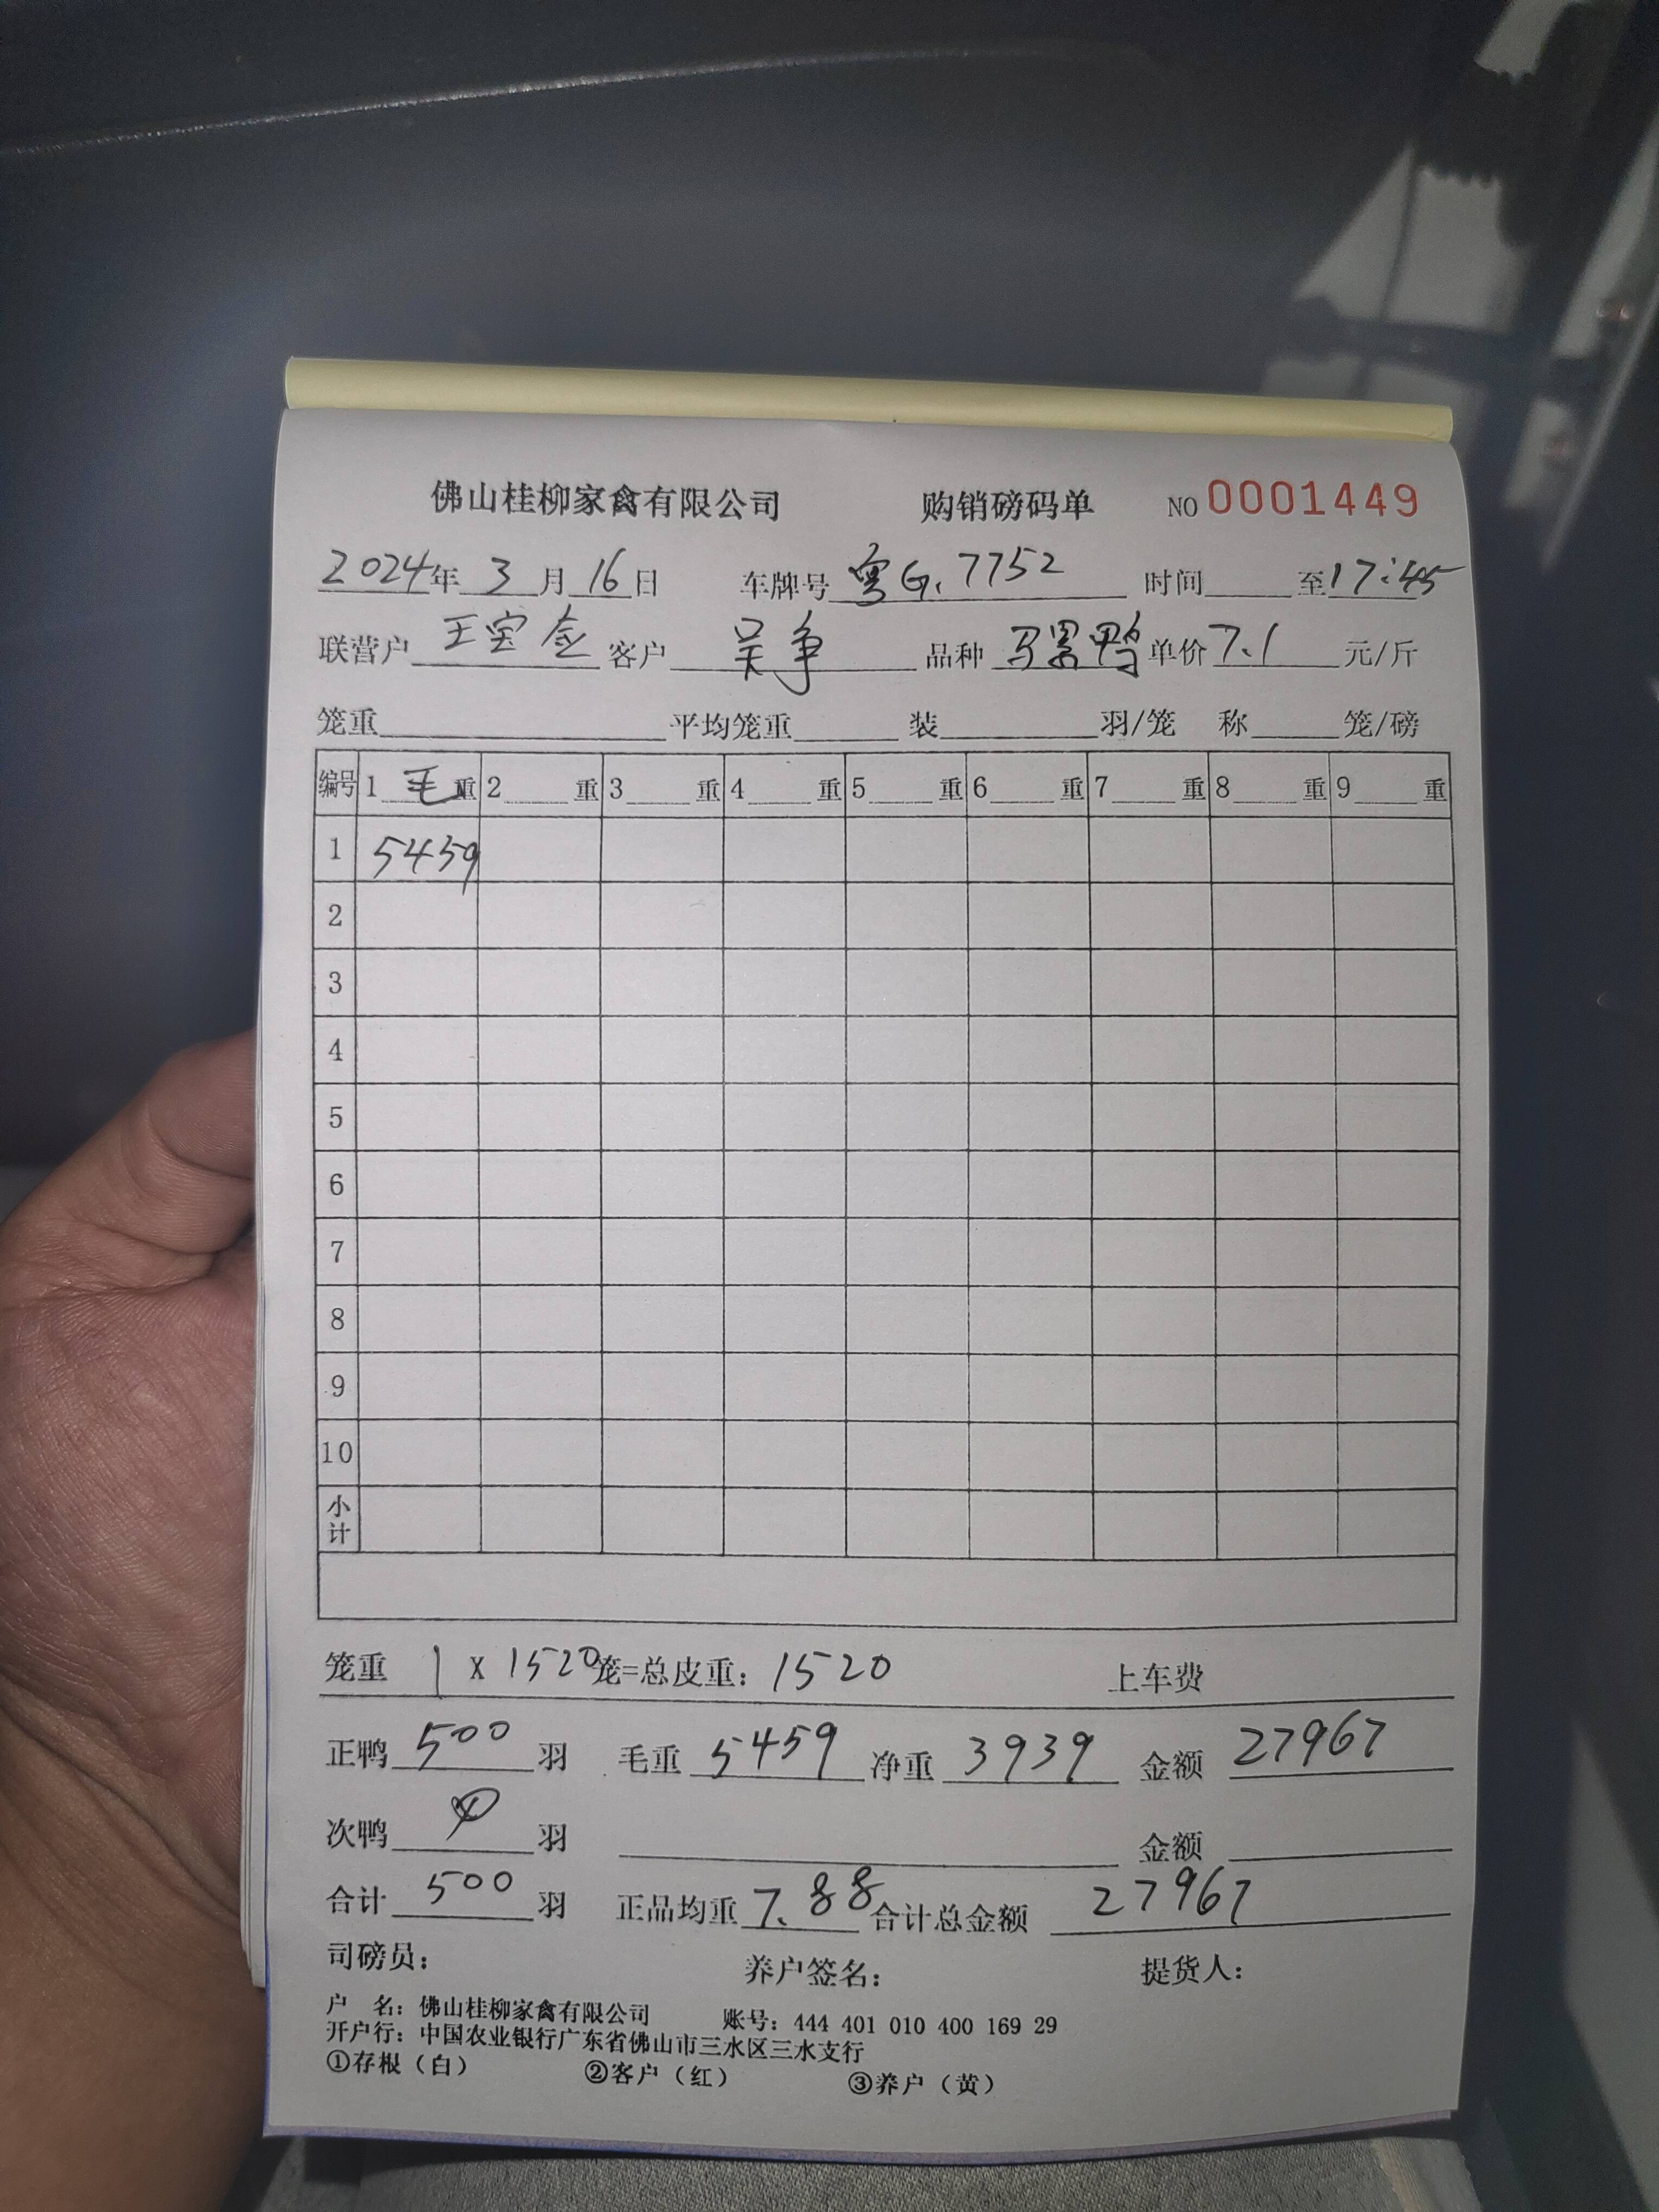 佛山桂柳家禽有限公司 购销磅码单 NO 0001449
2024年 3 月 16 日 车牌号 粤G.7752 时间 至 17:45
联营户 王宝金 客户 吴争 品种 马累鸭 单价 7.1 元/斤
笼重 平均笼重 装 羽/笼 称 笼/磅
编号 1 毛 重 2 重 3 重 4 重 5 重 6 重 7 重 8 重 9 重
1 5459
2
3
4
5
6
7
8
9
10
小计
笼重 1 x 1520 笼=总皮重: 1520 上车费
正鸭 500 羽 毛重 5459 净重 3939 金额 27967
次鸭 羽 金额
合计 500 羽 正品均重 7.88 合计总金额 27967
司磅员: 养户签名: 提货人:
户 名: 佛山桂柳家禽有限公司 账号: 444 401 010 400 169 29
开户行: 中国农业银行广东省佛山市三水区三水支行
①存根（白） ②客户（红） ③养户（黄）